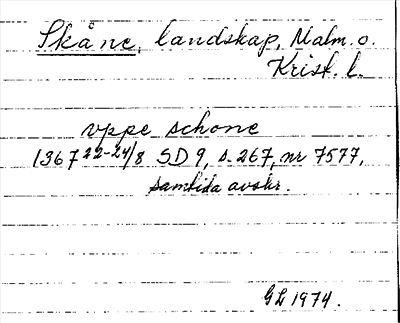 Skåne, landskap, Malm. o.
Krist. l.
vppe schone
1367 22-24/8 SD 9, s. 267, nr 7577,
samtida avskr.
GL 1974.